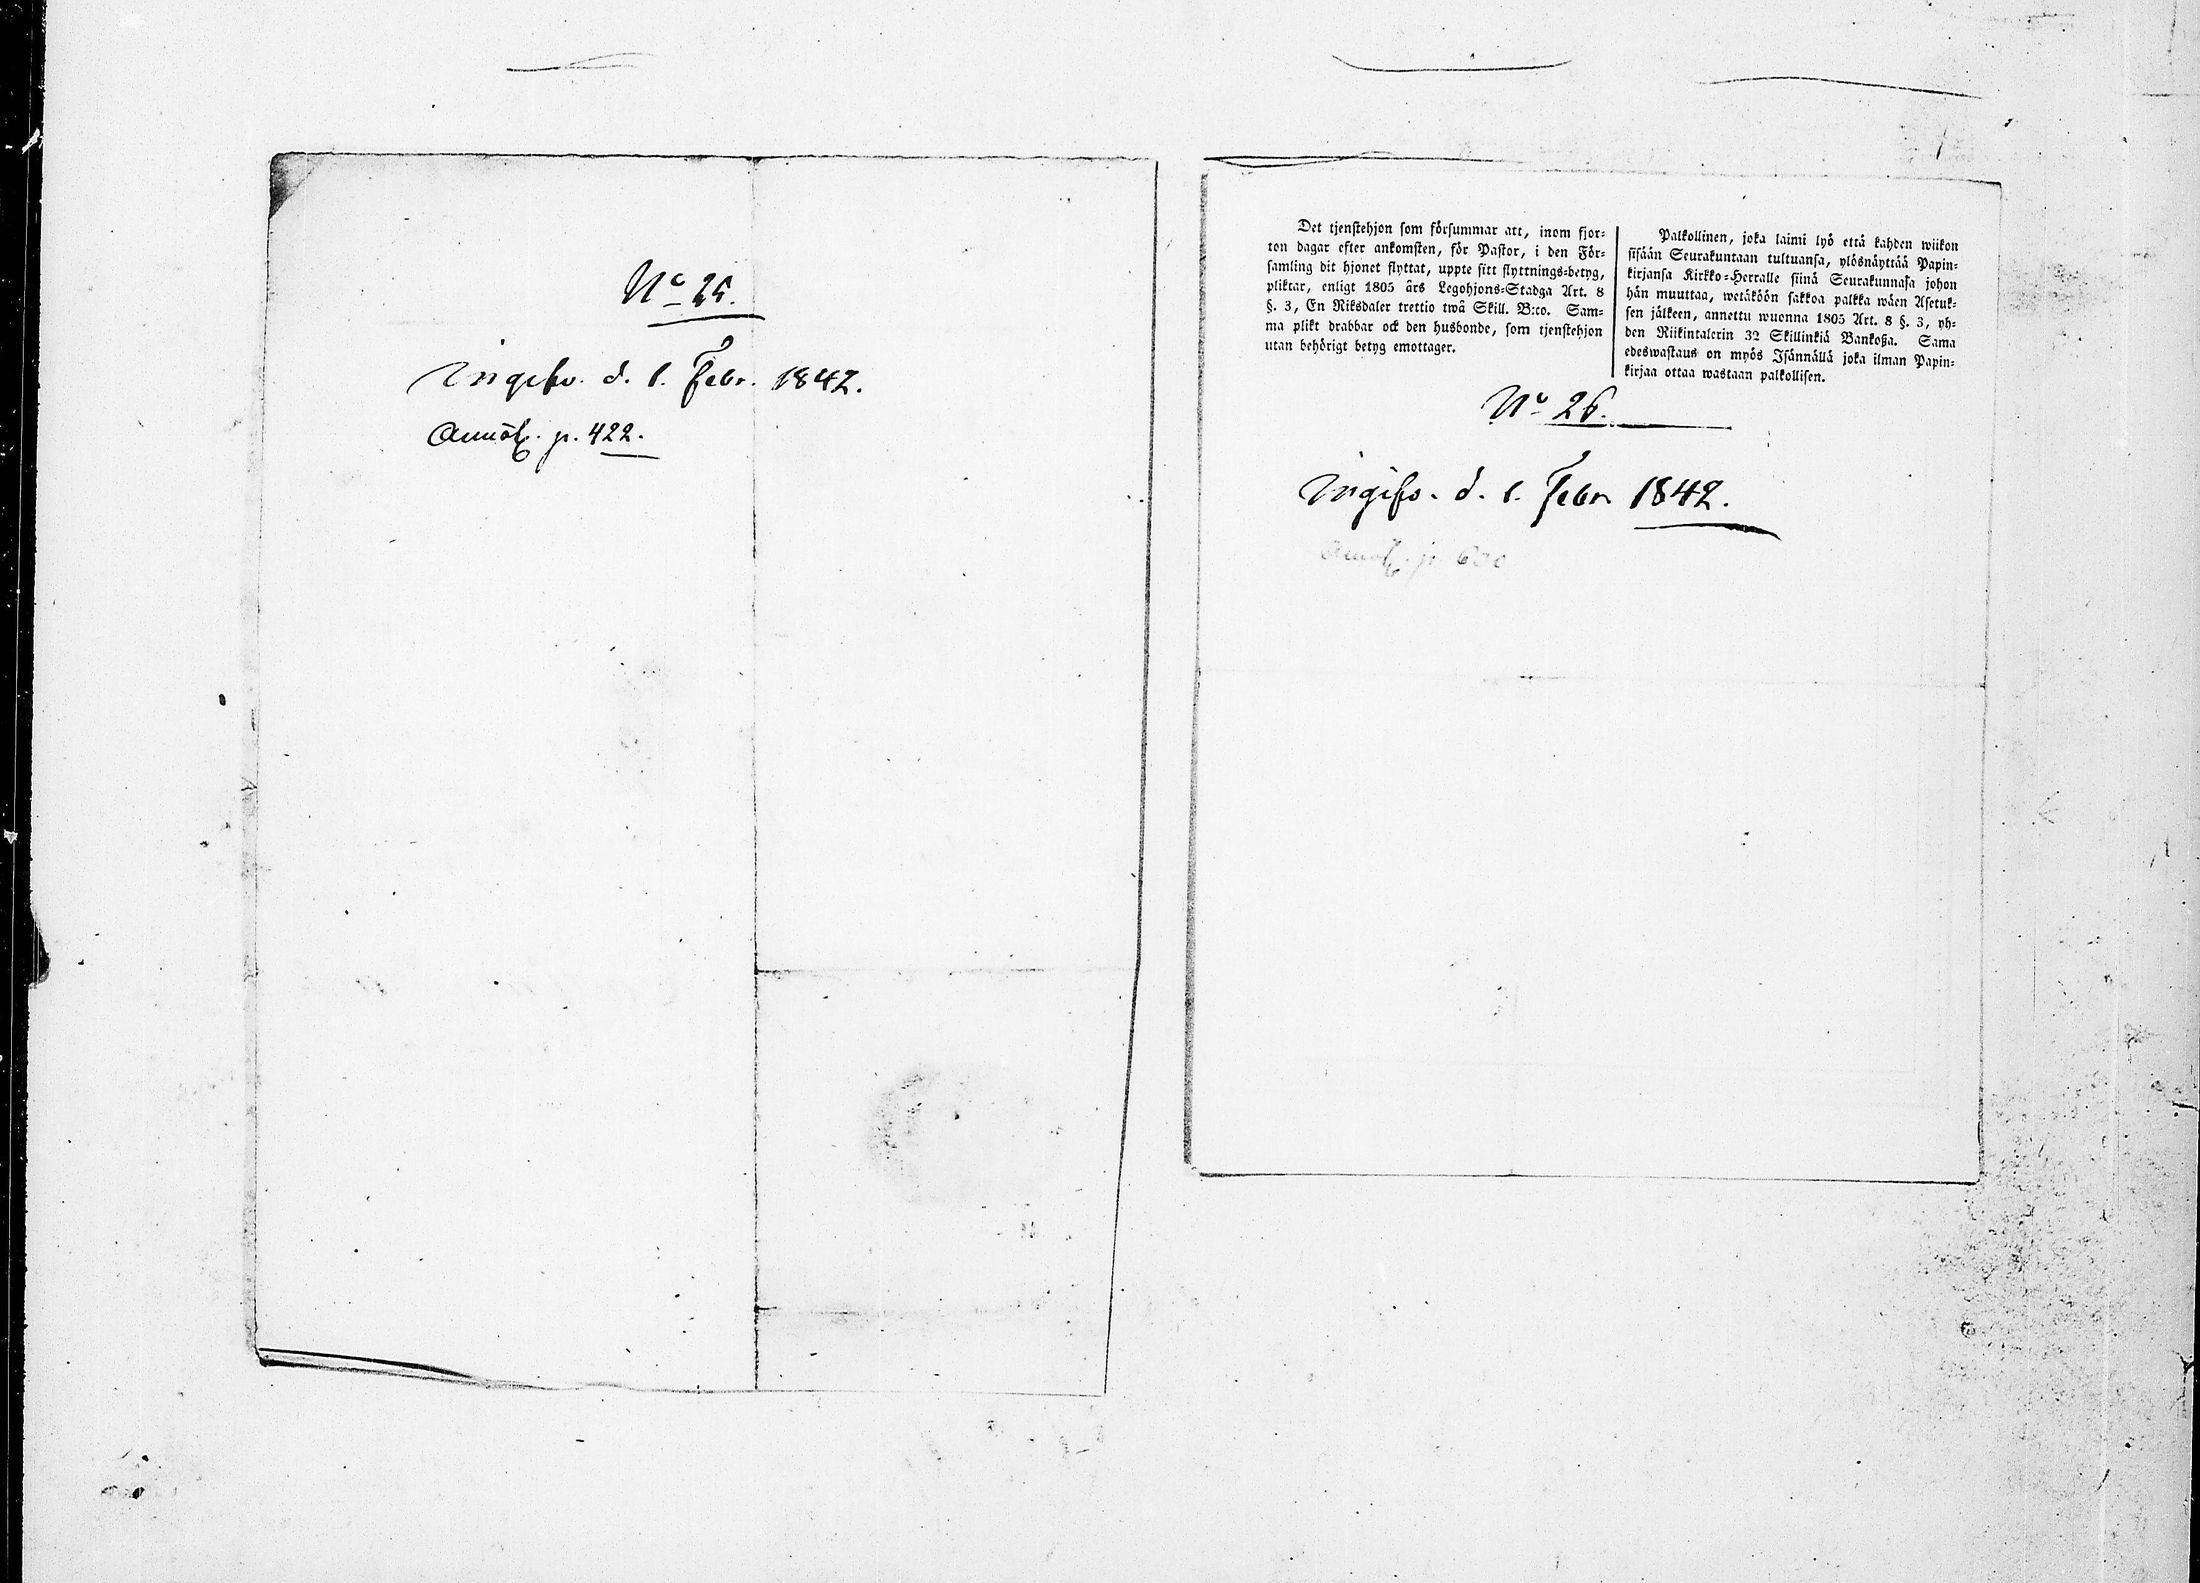 No 25.
Ingifv. d. 1. Febr. 1842.
Annot. p. 422.
Det tjenstehjon som försummar att, inom fjor-
ton dagar efter ankomsten, för Pastor, i den För-
samling dit hjonet flyttat, uppte sitt flyttnings-betyg,
pliktar, enligt 1805 års Legohjons-Stadga Art. 8
§. 3, En Riksdaler trettio twå Skill. B:co. Sam-
ma plikt drabbar ock den husbonde, som tjenstehjon
utan behörigt betyg emottager.
Palkollinen, joka laimi lyö että kahden wiikon
sisään Seurakuntaan tultuansa, ylösnäyttää Papin-
kirjansa Kirkko-Herralle siinä Seurakunnasa johon
hän muuttaa, wetäköön sakkoa palkka wäen Asetuk-
sen jälkeen, annettu wuonna 1805 Art. 8 §. 3, yh-
den Riikintalerin 32 Skillinkiä Bankoßa. Sama
edeswastaus on myös Isännällä joka ilman Papin-
kirjaa ottaa wastaan palkollisen.
No 26.
Ingifv. d. 1. Febr 1842.
Annot. p. 600